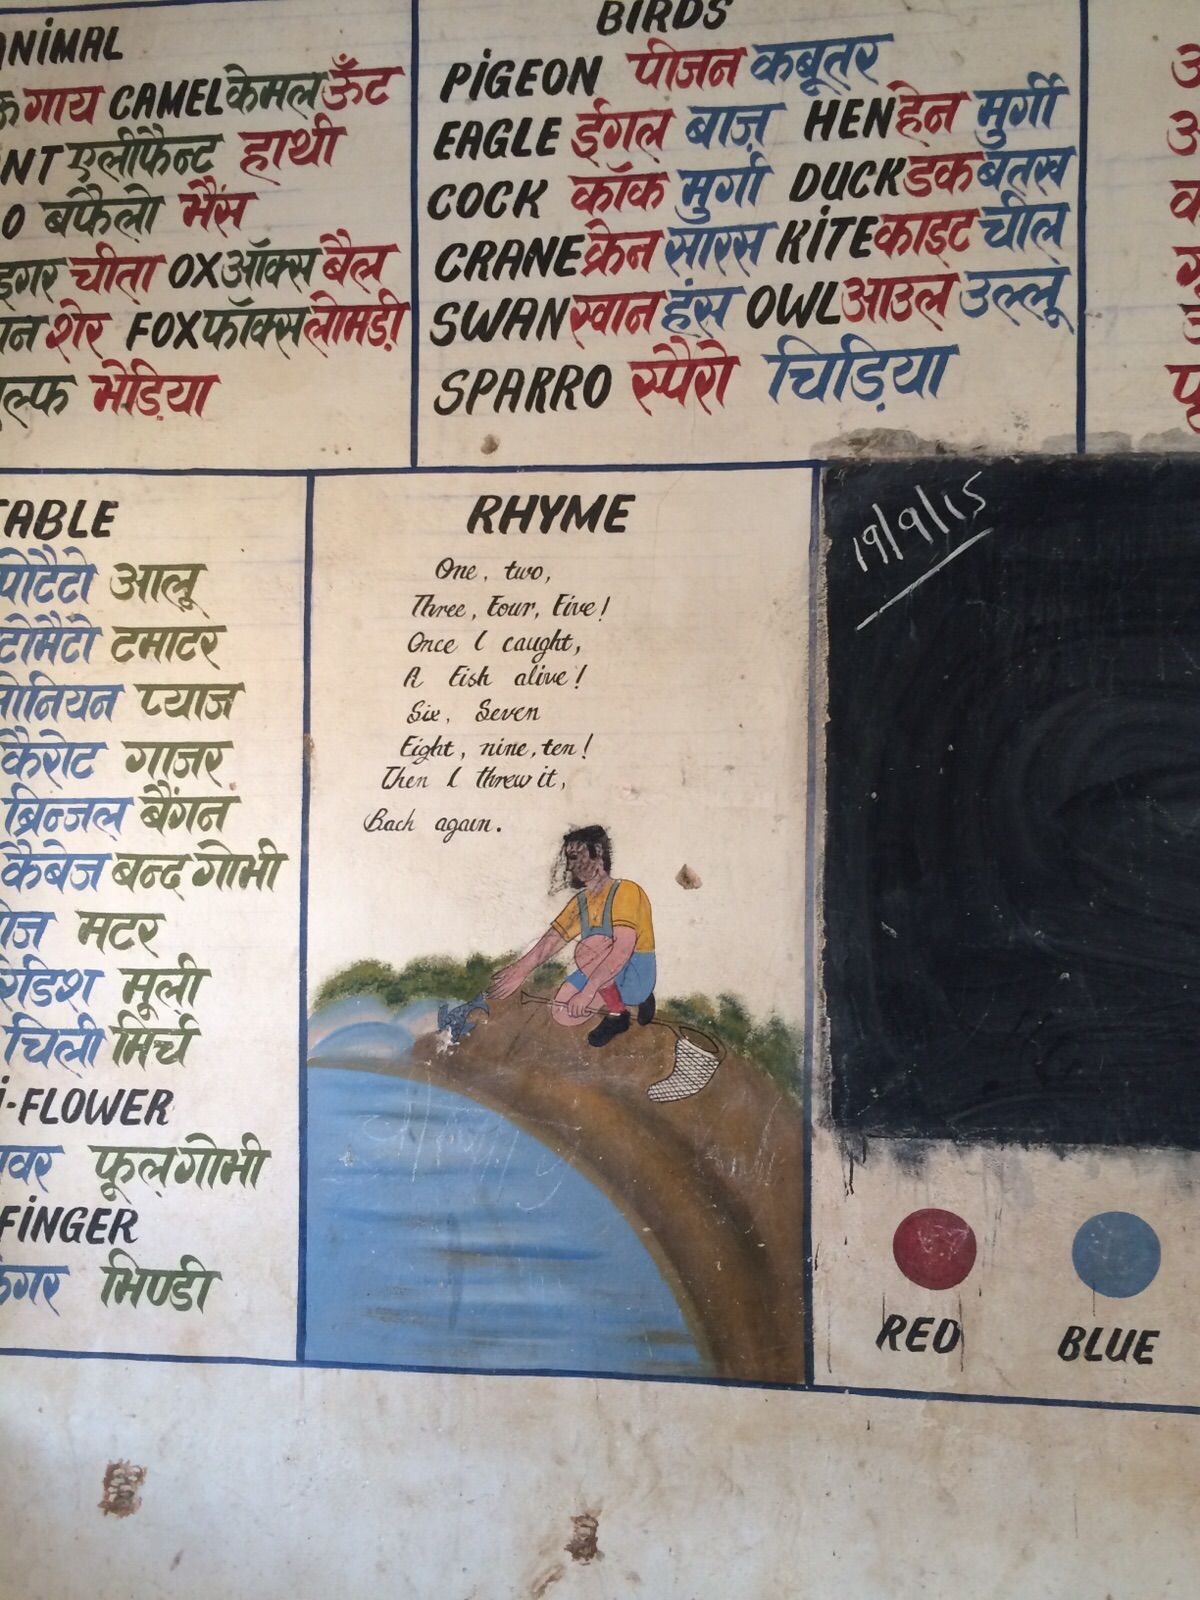 ANiMAL
गाय CAMEL केमल ऊँट
NT एलीफैन्ट हाथी
O बफैलो भैंस
इगर चीता OX ऑक्स बैल
न शेर FOX फॉक्स लोमड़ी
ल्फ भेड़िया
BIRDS
PiGEON पीजन कबूतर
EAGLE ईगल बाज़ HEN हेन मुर्गी
COCK कॉक मुर्गा DUCK डक बतख
CRANE क्रेन सारस KiTE काइट चील
SWAN स्वान हंस OWL आउल उल्लू
SPARRO स्पैरो चिड़िया
TABLE
पोटैटो आलू
टोमैटो टमाटर
ओनियन प्याज
कैरोट गाजर
ब्रिन्जल बैंगन
कैबेज बन्द गोभी
ीज मटर
रेडिश मूली
चिली मिर्च
i-FLOWER
वर फूलगोभी
FiNGER
फिंगर भिण्डी
RHYME
One, two,
Three, Four, Five!
Once I caught,
A Fish alive!
Six, Seven
Eight, nine, ten!
Then I threw it,
Back again.
19/9/15
RED
BLUE